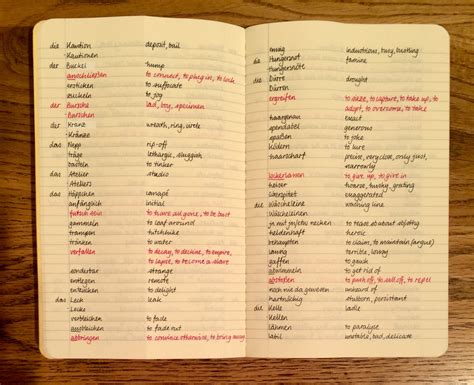 die Kaution deposit, bail
Kautionen
der Buckel hump
anschließen to connect, to plug in, to lock
ersticken to suffocate
zuckeln to jog
der Bursche lad, boy, specimen
Burschen
der Kranz wreath, ring, circle
Kränze
das Nepp rip-off
träge lethargic, sluggish
basteln to tinker
das Atelier studio
Ateliers
das Häppchen canapé
anfänglich initial
futsch sein to have all gone, to be bust
gammeln to loaf around
trampen hitchhike
tränken to water
verfallen to decay, to decline, to expire,
to lapse, to become a slave
sonderbar strange
entlegen remote
entzücken to delight
das Leck leak
Lecke
verbleichen to fade
ausbleichen to fade out
abbringen to convince otherwise, to bring away
emsig industrious, busy, bustling
die Hungersnot famine
Hungersnöte
die Dürre drought
Dürren
ergreifen to seize, to capture, to take up, to
adopt, to overcome, to take
haargenau exact
spendabel generous
spaßen to joke
ködern to lure
haarscharf precise, very close, only just,
narrowly
lockerlassen to give up, to give in
heiser hoarse, husky, grating
überspitzt exaggerated
die Wäscheleine
Wäscheleinen
necken to tease about sb/sthg
heldenhaft heroic
behaupten to claim, to maintain (argue)
lausig terrible, lousy
gaffen to gawk
abwimmeln to get rid of
abstoßen to push off, to sell off, to repel
noch nie da gewesen unheard of
hartnäckig stubborn, persistent
die Kelle ladle
Kellen
lähmen to paralyse
labil unstable, bad, delicate